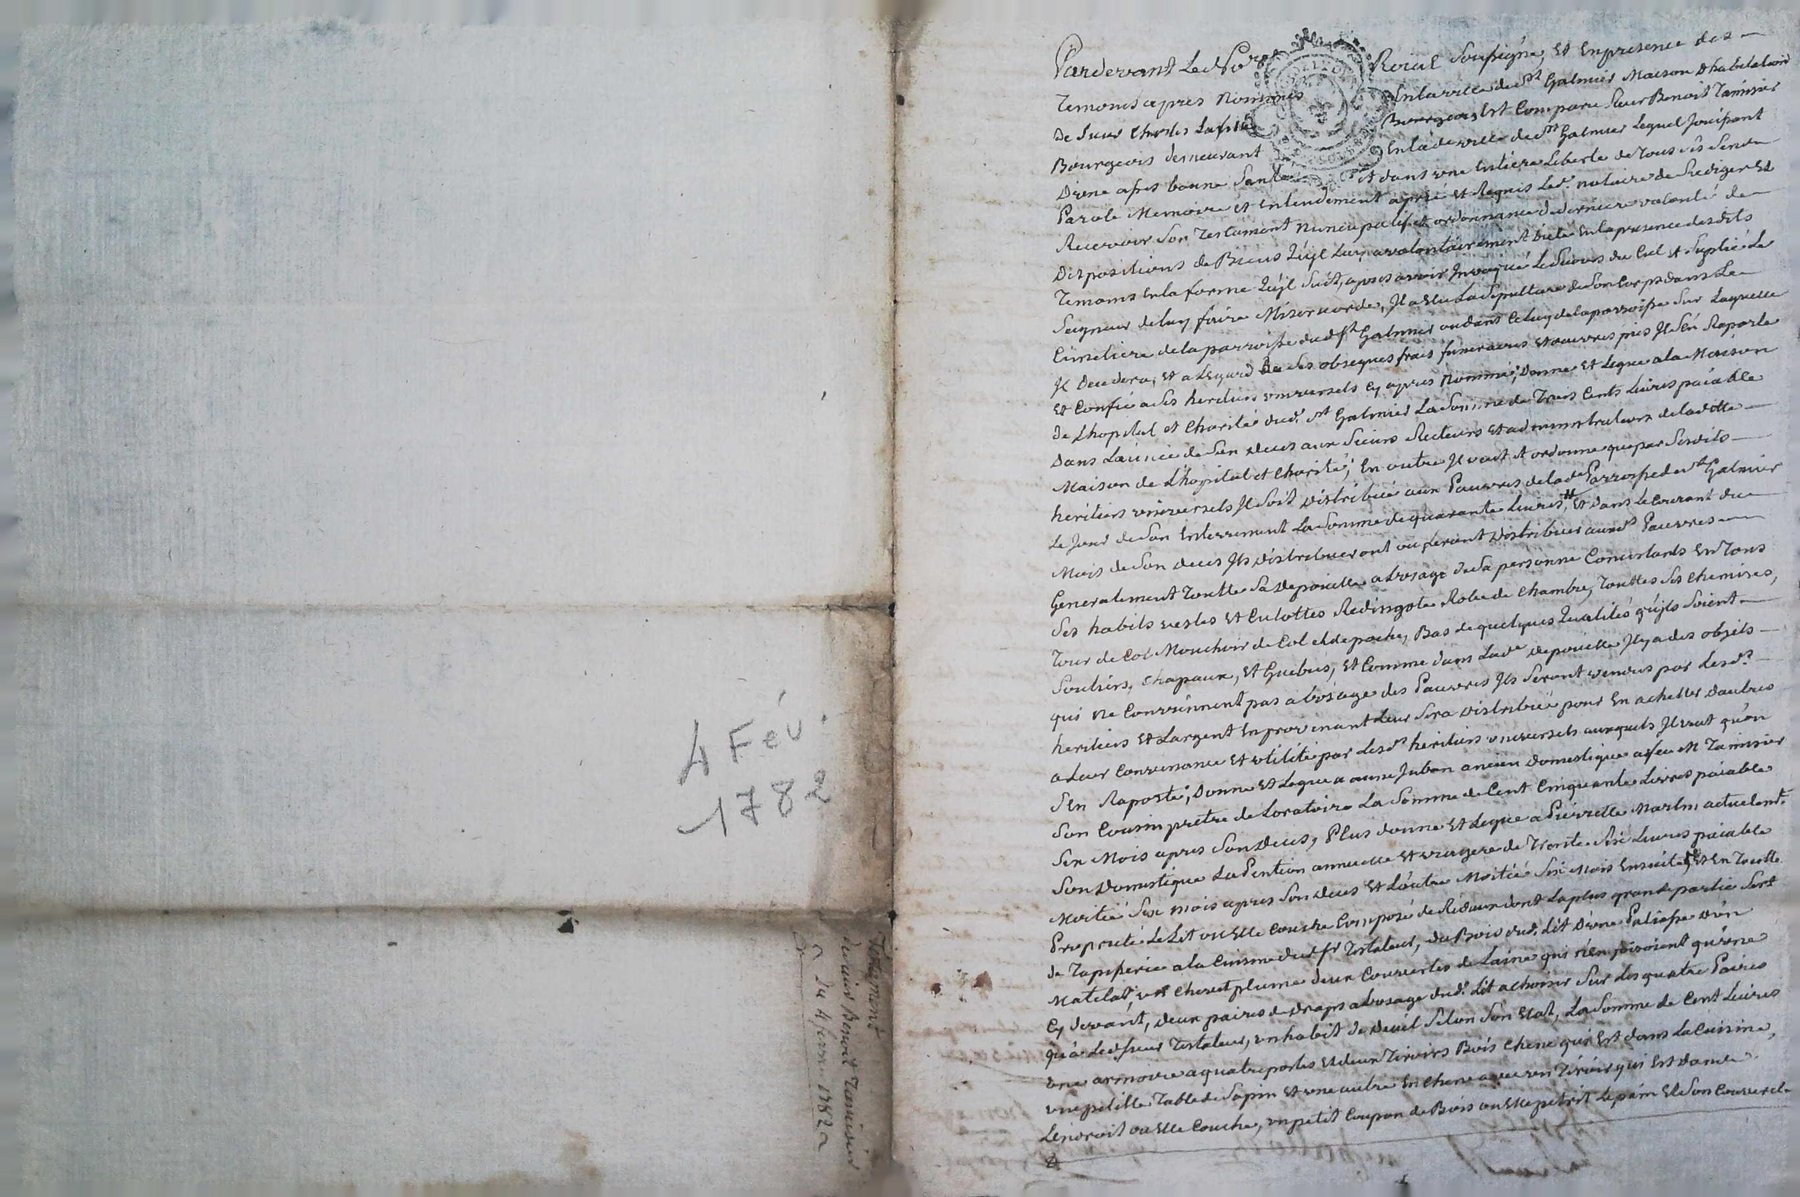 4 Fév.
1782
Testament
de sieur Benoit Tamisier
du 4 fevrier 1782
Pardevant Le Royal Soussigné, Et En presence des
Temoins apres Nommés En la ville de St Galmier Maison d'habitation
De Sieur Charles Bourgeois, Est Comparu Sieur Benoit Tamisier
Bourgeois demeurant En lade ville de St Galmier Lequel Jouissant
Dune asses bonne Santé Et dans une Entiere Liberté de Tous ses Sens
Parole Memoire et Entendement a prié Et Requis Led. notaire de Rediger Et
Recevoir Son Testament Nuncupatif et ordonnance de derniere volonté de
Dispositions de Biens Quil Luy a volontairement Dicté En la presence desdits
Temoins En la forme Quil Suit, apres avoir Invoqué Le Secours du Ciel Et Suplié Le
Seigneur de luy faire Misericorde, Il a Elu La Sepulture de Son Corps dans Le
Cimetiere de la parroisse dud. St Galmier ou dans Celuy de la parroisse Sur Laquelle
Il Decedera, Et a L'Egard De Ses obseques frais funeraires Et œuvres pies Il S'en Raporte
Et Confie a Ses heritiers universels Cy apres Nommés; Donne Et Legue a la Maison
De L'hopital et Charité dud. St Galmier La Somme de Trois Cents Livres païable
Dans L'année de Son deces aux Sieurs Recteurs Et administrateurs de ladite
Maison de L'hopital et Charité; En outre Il veut Et ordonne que par Sesdits
heritiers universels Il Soit Distribué aux Pauvres de lade Parroisse de St Galmier
Le Jour de Son Enterrement La Somme de quarante Livres, Et dans Le Courant du
Mois de Son deces Ils distribueront ou feront Distribuer auxds Pauvres
Generalement Toutte Sa Depoüille a L'usage de Sa personne Consistants En Tous
Ses habits vestes Et Culottes Redingote Robe de Chambre, Touttes Ses Chemises,
Tour de Col Mouchoir de Col et de poche, Bas de quelques Qualités qu'ils Soient
Souliers, Chapaux, Et Guetres, Et Comme dans Lade depoüille Il y a des objets
qui Ne Conviennent pas a L'usage des Pauvres Ils Seront vendus par Lesds
heritiers Et L'argent En provenant Leur Sera Distribué pour En achetter D'autres
a Leur Convenance Et Utilité par Lesds heritiers universels auxquels Il veut qu'on
S'En Raporte; Donne Et Legue a Juban ancien Domestique a feu M Tamisier
Son Cousin pretre de L'oratoire La Somme de Cent Cinquante Livres païable
Six Mois apres Son Deces, Plus donne Et Legue a Pierrette Martin actuelemt
Son Domestique La Pention annuelle Et viagere de Trente Six Livres païable
Moitié Six mois apres Son deces Et L'autre Moitié Six Mois Ensuite, Et En Toutte
Proprieté Le Lit ou Elle Couche Composé de Rideaux dont La plus grande partie Sert
de Tapisserie a la Cuisine dud. Sr Testateur, du Bois dud. Lit D'une Paliasse D'un
Matelat, un Chevet plume deux Couvertes de Laine qui N'en faisoient qu'une
Cy devant, deux paires de draps a L'usage dud. Lit a choisir Sur Les quatre Paires
qu'a Led. Sieur Testateur, un habit de deuil Selon Son Etat, La Somme de Cent Livres
une armoire a quatre portes Et deux Tiroirs Bois Chene qui Est dans La Cuisine,
une petitte Table de Sapin Et une autre En Chene avec un Tiroir qui Est dans
L'endroit ou Elle Couche, un petit Coupon de Bois ou Elle petrit Le pain Et Son Couvercle